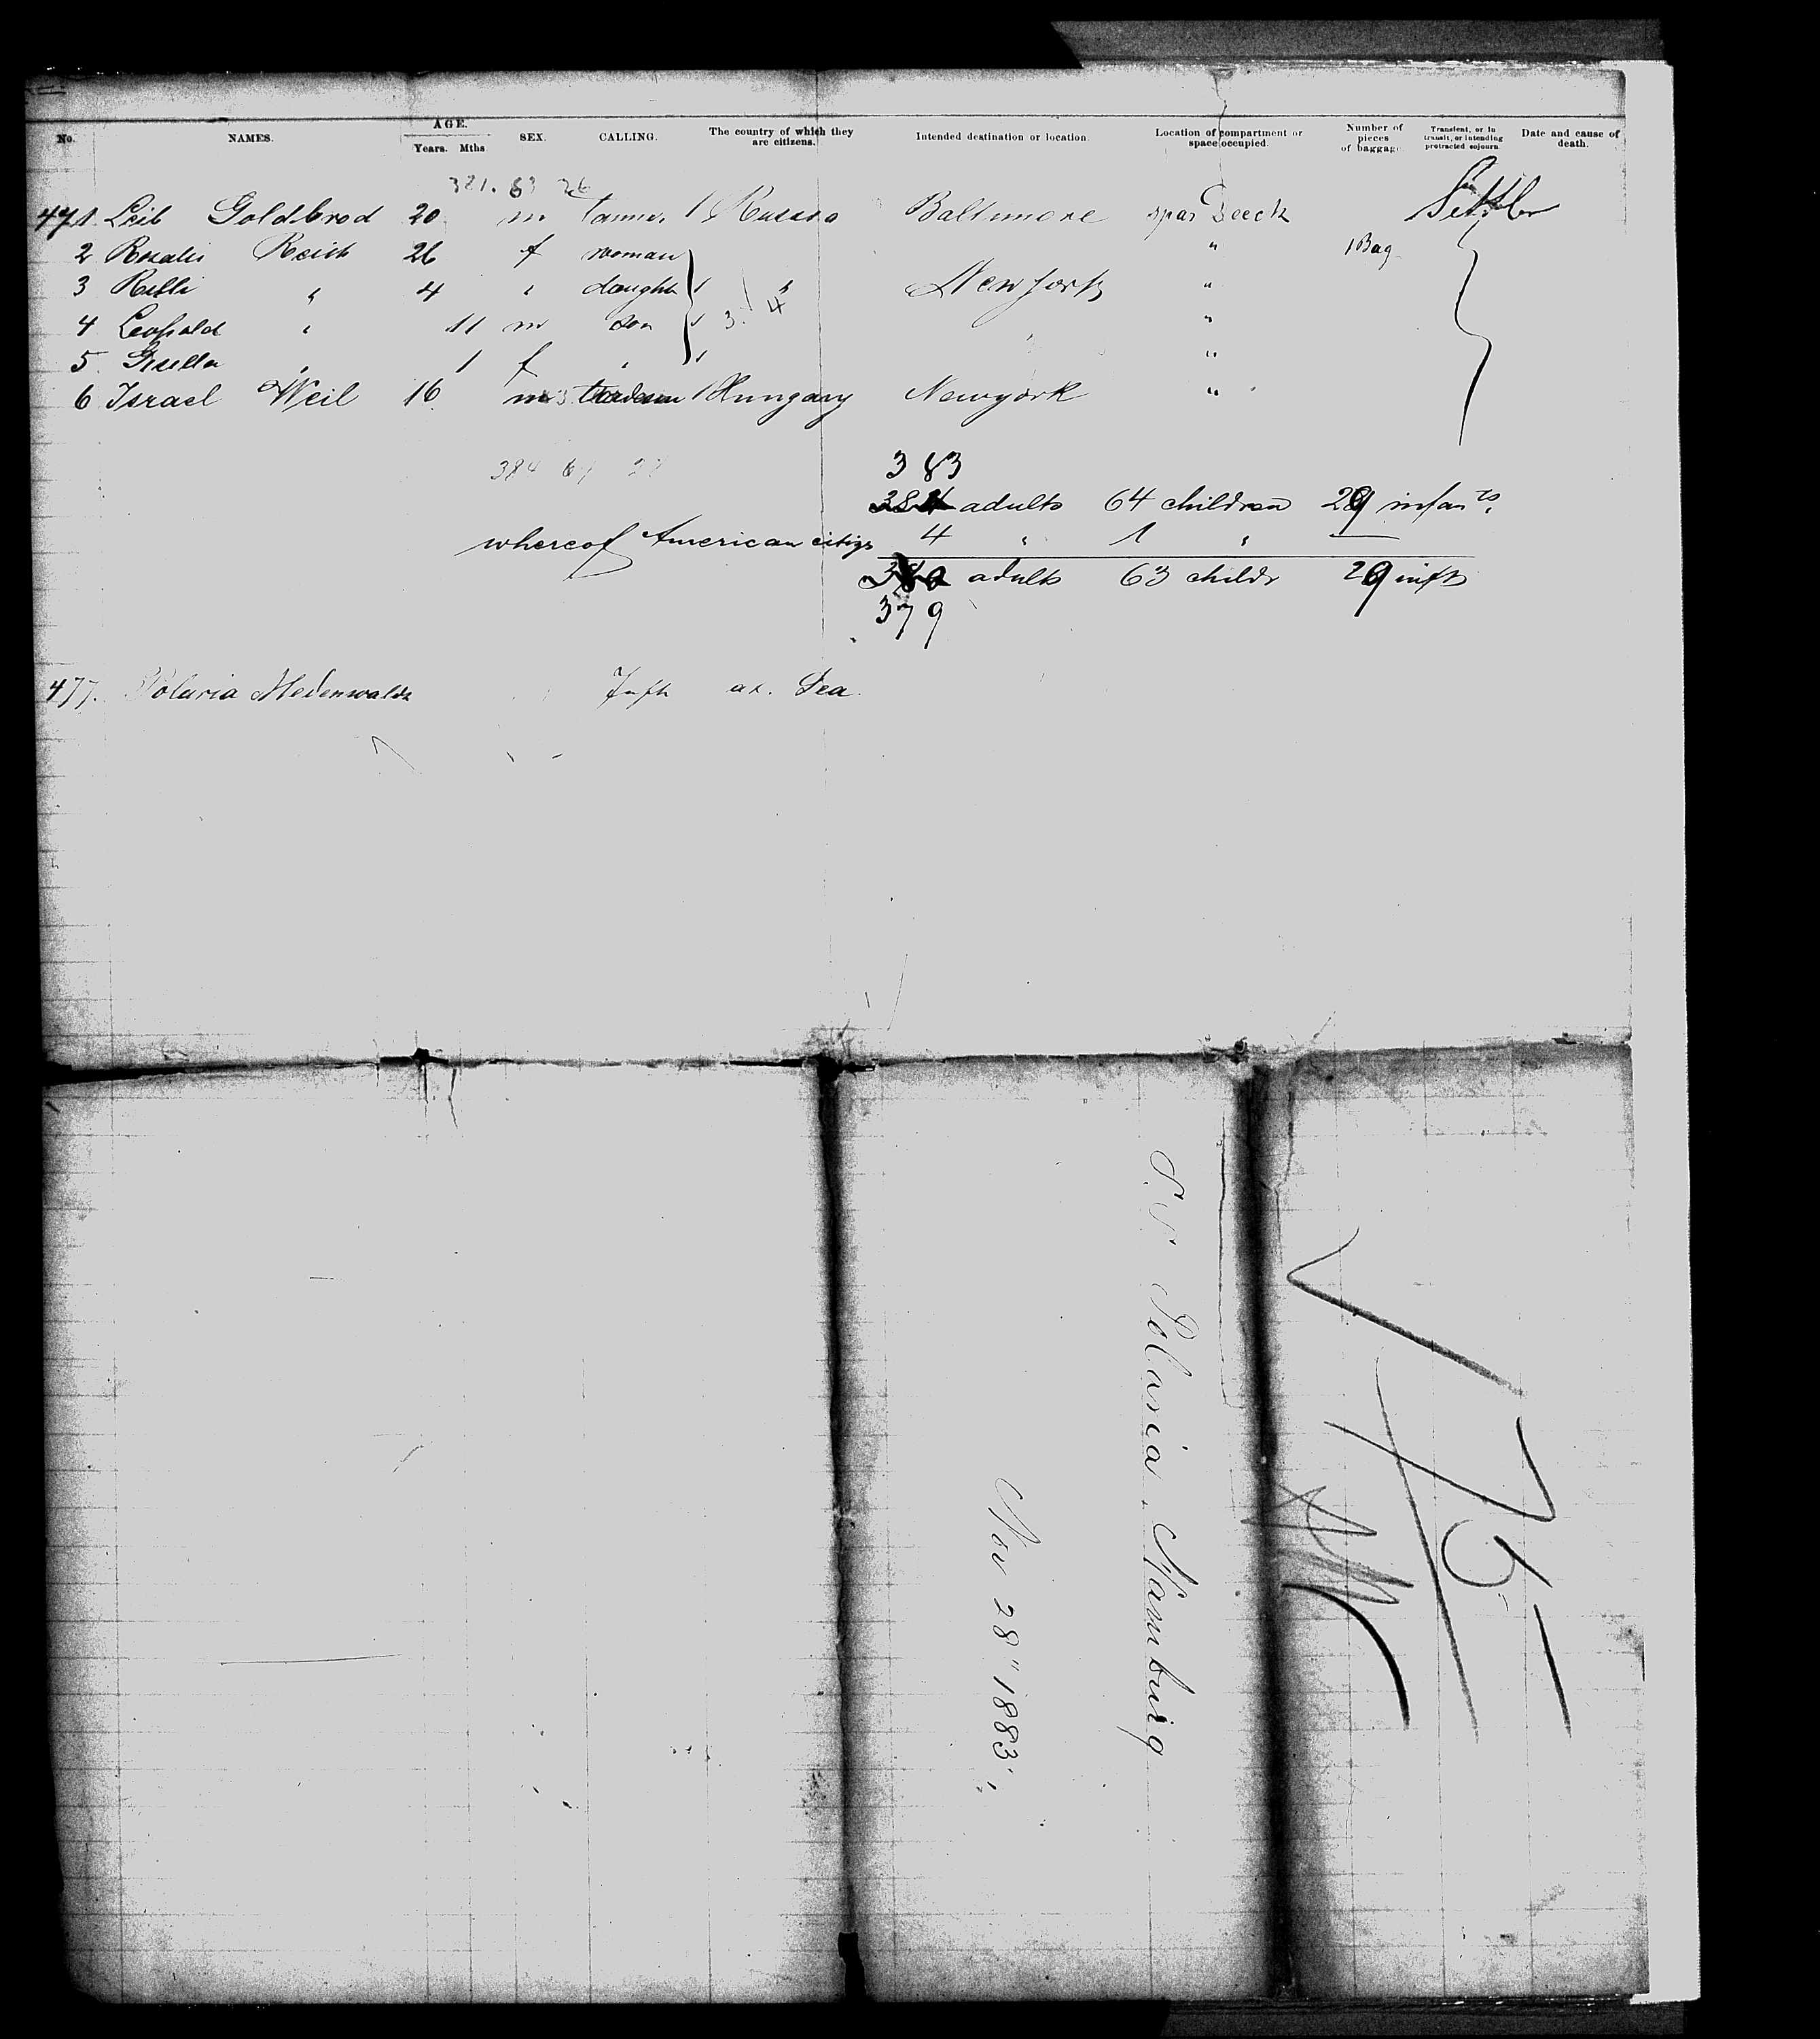 No. NAMES. AGE. Years. Mths. SEX. CALLING. The country of which they are citizens. Intended destination or location. Location of compartment or space occupied. Number of pieces of baggage Transient, or in transit, or intending protracted sojourn Date and cause of death.
321. 63 26
471 Leib Goldbrod 20 m 1 Russia Baltimore spar Deeck Settler
2 Rosalie Reich 26 f woman " 1 Bag
3 " 4 " daught 1 " New York "
4 Leopold " 11 m son 1 3. 4 "
5. Gisella " 1 f " 1 "
6 Israel Weil 16 m 1 Hungary Newyork "
383
384 adults 64 children 29 infants.
whereof American citizs 4 " 1 " —
380 adults 63 childr 29 infts
379
477. Polaria Medenwaldt
S.S. Polaria. Hamburg
Nov 28" 1883.
75